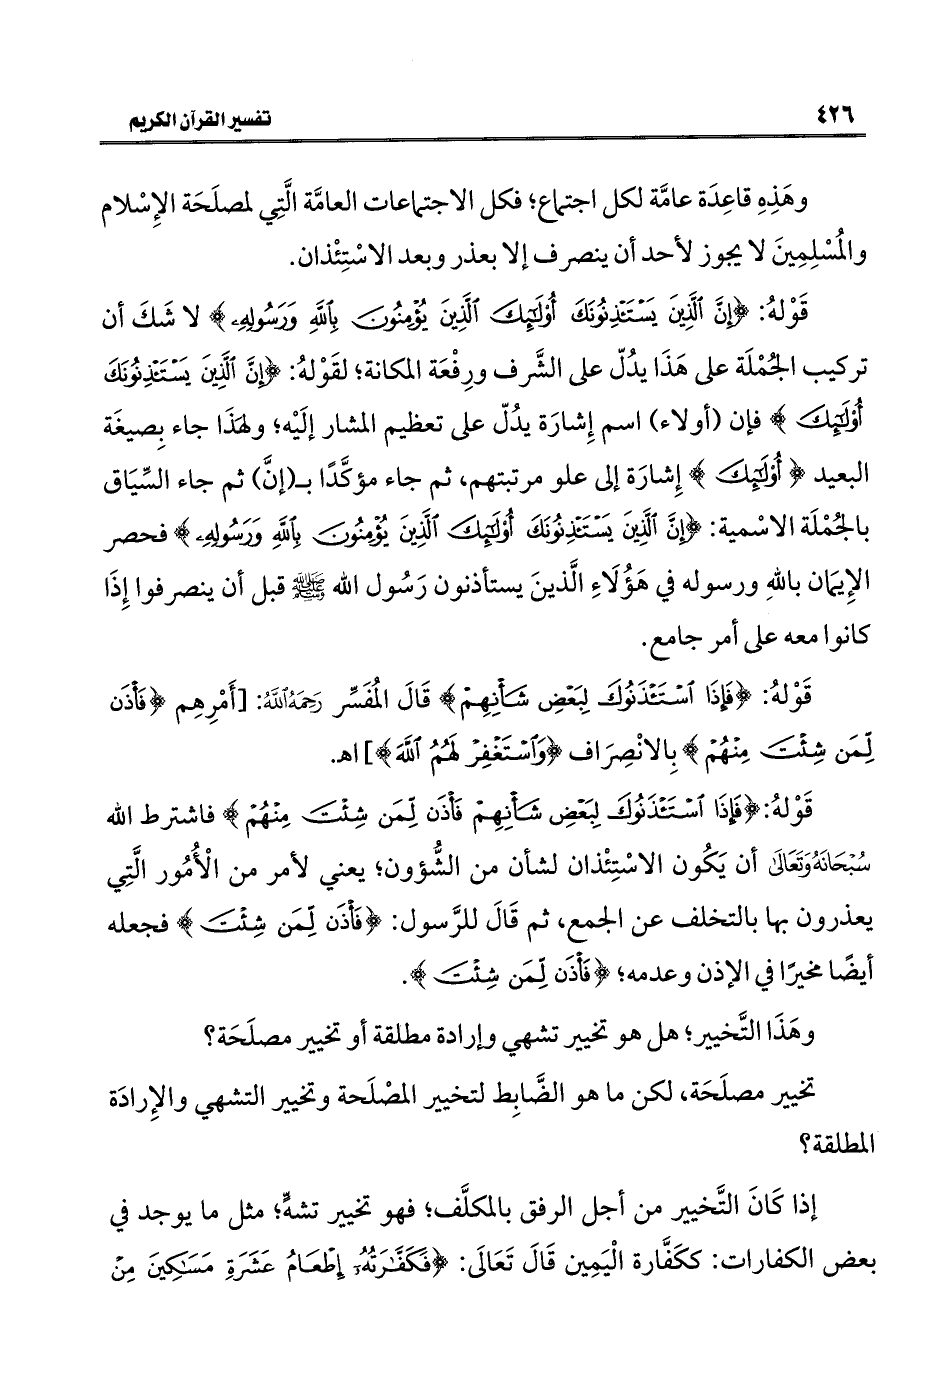 ٤٢٦ تفسير القرآن الكريم
وهَذِهِ قاعِدَة عامَّة لكل اجتماع؛ فكل الاجتماعات العامَّة الَّتِي لمصلَحَة الإِسْلام
والمُسْلِمِينَ لا يجوز لأحد أن ينصرف إلا بعذر وبعد الاسْتِئْذان.
قَوْلهُ: ﴿إِنَّ ٱلَّذِينَ يَسْتَـْٔذِنُونَكَ أُوْلَٰٓئِكَ ٱلَّذِينَ يُؤْمِنُونَ بِٱللَّهِ وَرَسُولِهِۦ﴾ لا شَكَ أن
تركيب الجُمْلَة على هَذَا يدُلّ على الشَّرف ورِفْعَة المكانة؛ لقَوْلهُ: ﴿إِنَّ ٱلَّذِينَ يَسْتَـْٔذِنُونَكَ
أُوْلَٰٓئِكَ﴾ فإن (أولاء) اسم إِشارَة يدُلّ على تعظيم المشار إلَيْه؛ ولهَذَا جاء بِصيغَة
البعيد ﴿أُوْلَٰٓئِكَ﴾ إِشارَة إلى علو مرتبتهم، ثم جاء مؤكَّدًا بـ(إنَّ) ثم جاء السِّيَاق
بالجُمْلَة الاسْمية: ﴿إِنَّ ٱلَّذِينَ يَسْتَـْٔذِنُونَكَ أُوْلَٰٓئِكَ ٱلَّذِينَ يُؤْمِنُونَ بِٱللَّهِ وَرَسُولِهِۦ﴾ فحصر
الإِيمَان باللهِ ورسوله في هَؤُلَاءِ الَّذينَ يستأذنون رَسُول الله ﷺ قبل أن ينصرفوا إِذَا
كانوا معه على أمر جامع.
قَوْلهُ: ﴿فَإِذَا ٱسْتَـْٔذَنُوكَ لِبَعْضِ شَأْنِهِمْ﴾ قَالَ المُفَسِّر رَحِمَهُ ٱللَّهُ: [أَمْرِهِم ﴿فَأْذَن
لِّمَن شِئْتَ مِنْهُمْ﴾ بِالانْصِرَاف ﴿وَٱسْتَغْفِرْ لَهُمُ ٱللَّهَ﴾] اهـ.
قَوْلهُ: ﴿فَإِذَا ٱسْتَـْٔذَنُوكَ لِبَعْضِ شَأْنِهِمْ فَأْذَن لِّمَن شِئْتَ مِنْهُمْ﴾ فاشترط الله
سُبْحَانَهُ وَتَعَالَى أن يَكُون الاسْتِئْذان لشأن من الشُّؤون؛ يعني لأمر من الْأُمُور الَّتِي
يعذرون بها بالتخلف عن الجمع، ثم قَالَ للرَّسول: ﴿فَأْذَن لِّمَن شِئْتَ﴾ فجعله
أيضًا مخيرًا في الإذن وعدمه؛ ﴿فَأْذَن لِّمَن شِئْتَ﴾.
وهَذَا التَّخيير؛ هل هو تخيير تشهي وإرادة مطلقة أو تخيير مصلَحَة؟
تخيير مصلَحَة، لكن ما هو الضَّابِط لتخيير المصْلَحة وتخيير التشهي والإِرادَة
المطلقة؟
إذا كَانَ التَّخيير من أجل الرفق بالمكلَّف؛ فهو تخيير تشهٍّ؛ مثل ما يوجد في
بعض الكفارات: ككفَّارة الْيَمِين قَالَ تَعَالَى: ﴿فَكَفَّٰرَتُهُۥٓ إِطْعَامُ عَشَرَةِ مَسَٰكِينَ مِنْ